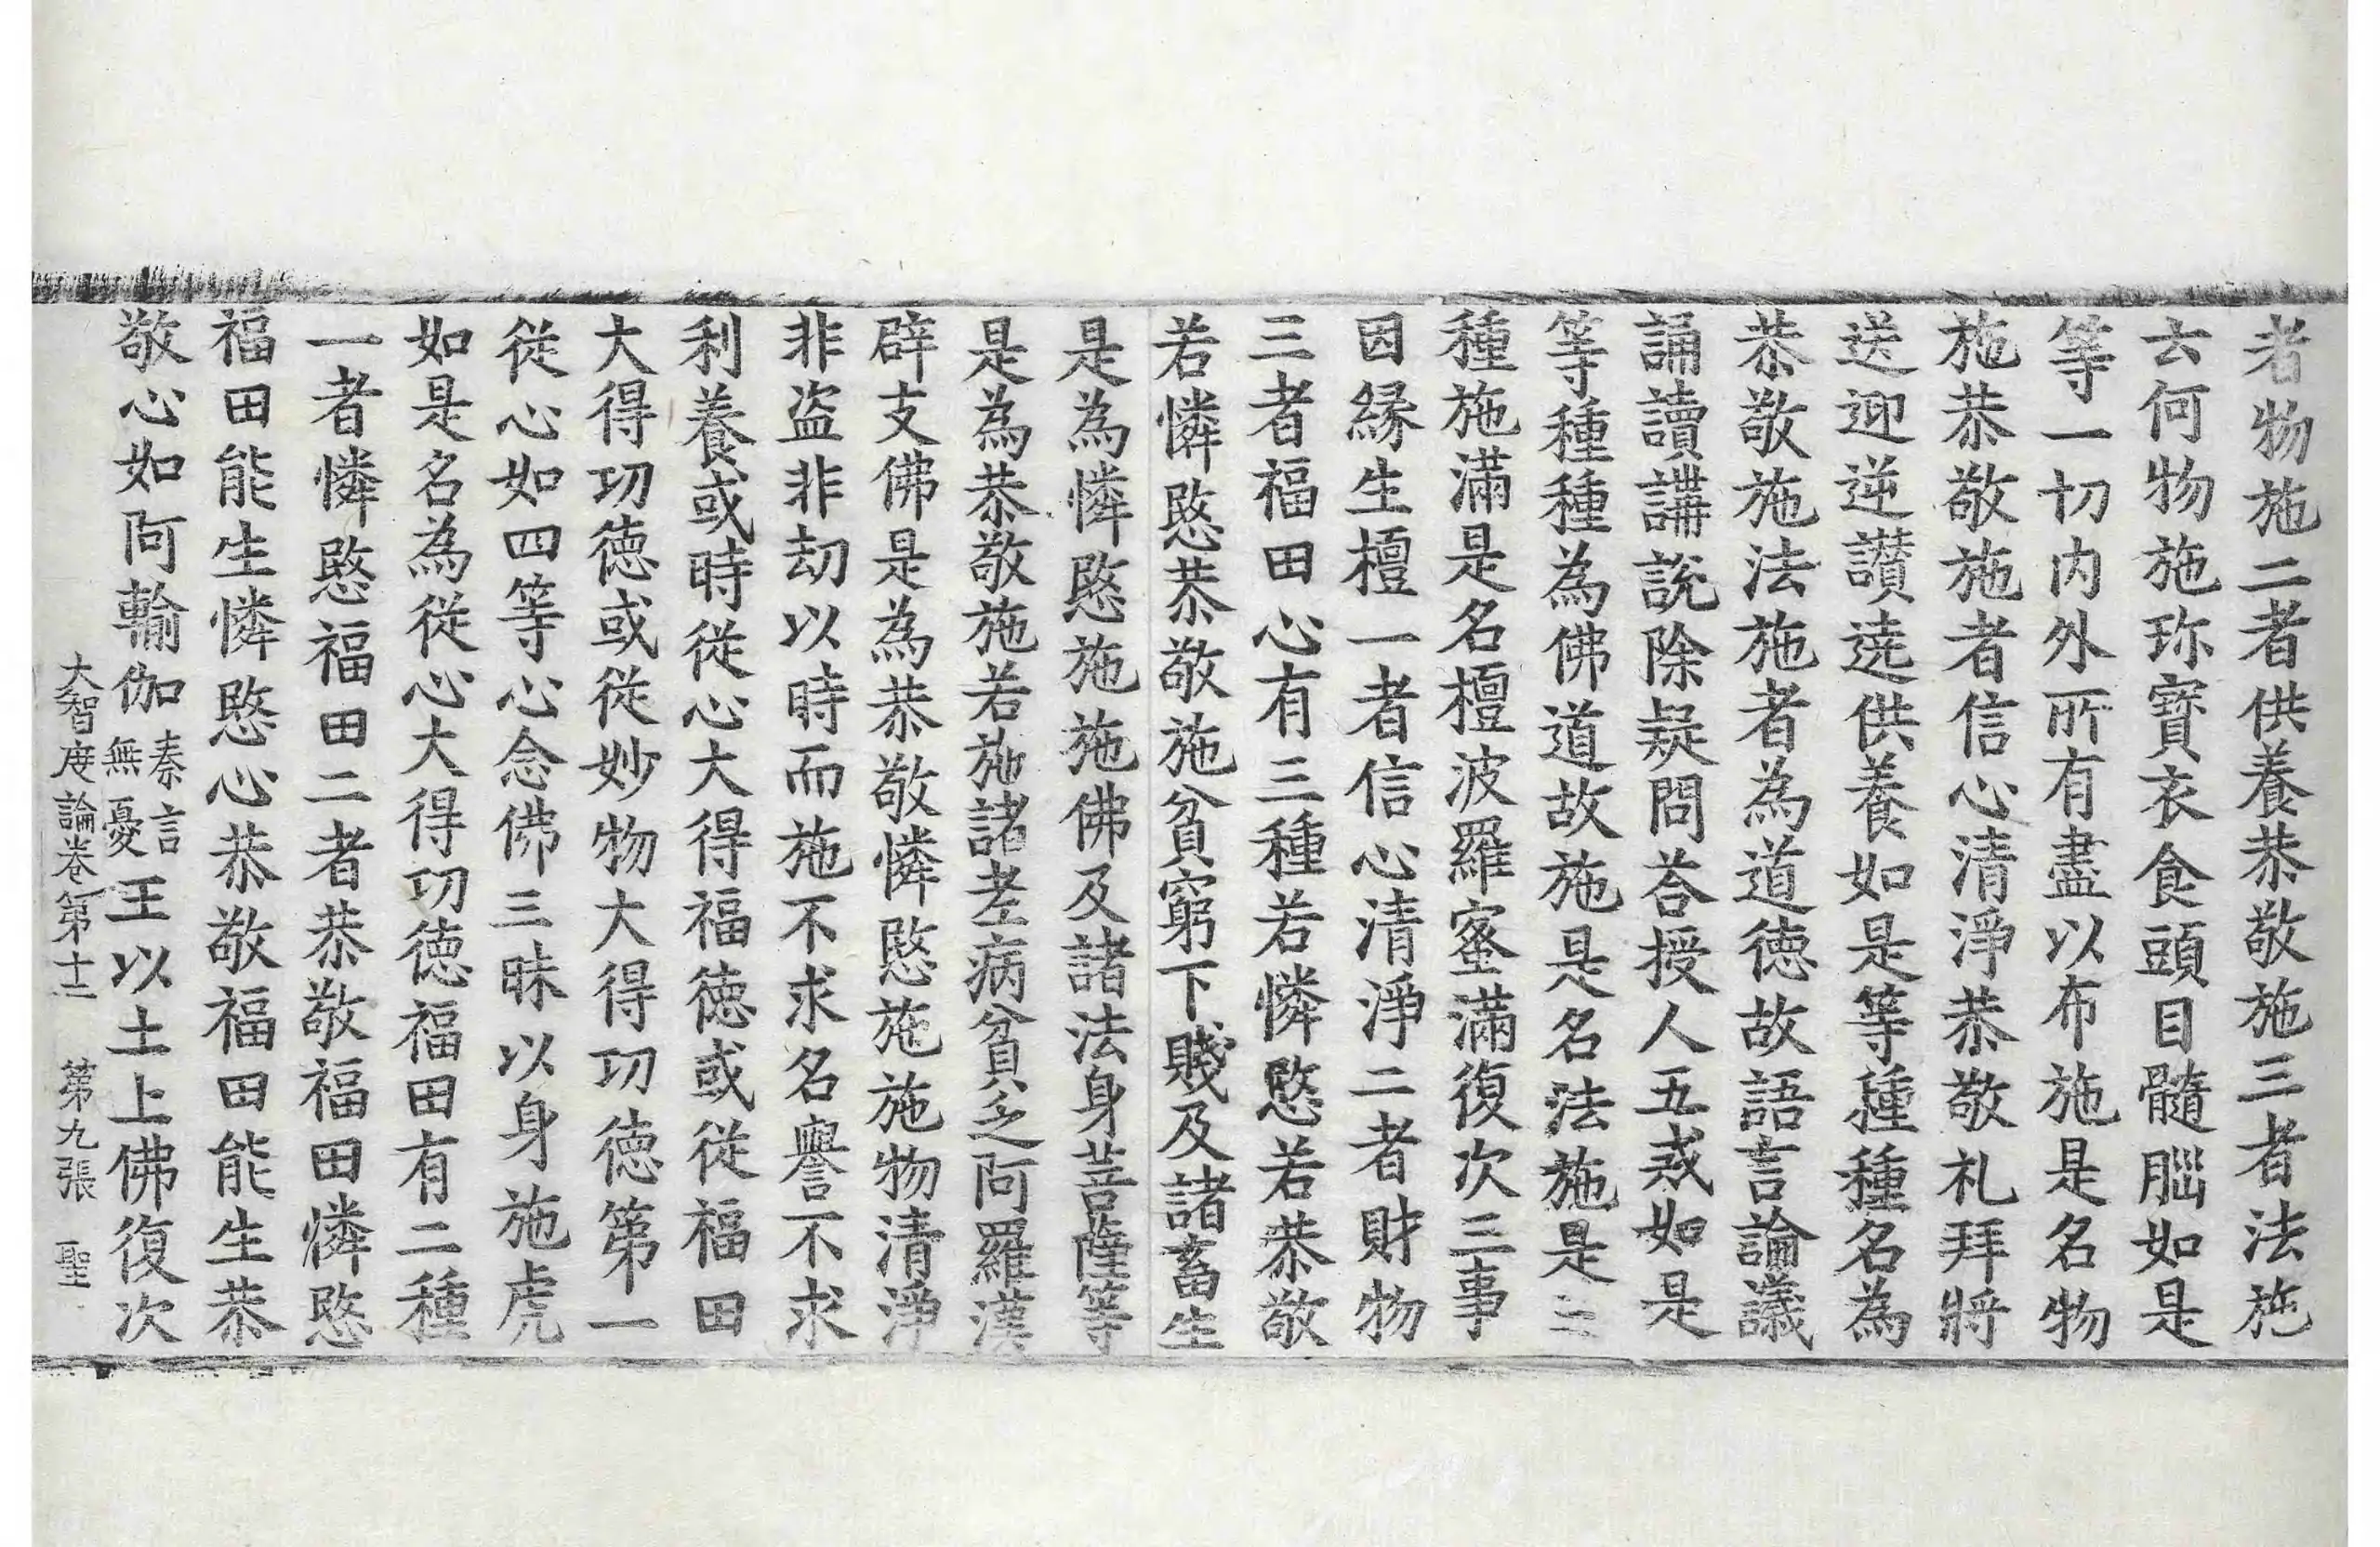 者物施二者供養恭敬施三者法施
云何物施珎寶衣食頭目髓腦如是
等一切内外所有盡以布施是名物
施恭敬施者信心清淨恭敬礼拜將
送迎逆讃遶供養如是等種種名為
恭敬施法施者為道德故語言論議
誦讀講說除疑問荅授人五戒如是
等種種為佛道故施是名法施是三
種施滿是名檀波羅蜜滿復次三事
因緣生檀一者信心清淨二者財物
三者福田心有三種若憐愍若恭敬
若憐愍恭敬施貧窮下賤及諸畜生
是為憐愍施施佛及諸法身菩薩等
是為恭敬施若施諸老病貧乏阿羅漢
辟支佛是為恭敬憐愍施施物清淨
非盗非劫以時而施不求名譽不求
利養或時從心大得福德或從福田
大得功德或從妙物大得功德第一
從心如四等心念佛三昧以身施虎
如是名為從心大得功德福田有二種
一者憐愍福田二者恭敬福田憐愍
福田能生憐愍心恭敬福田能生恭
敬心如阿輸伽秦言無憂王以土上佛復次
大智度論卷第十二 第九張 聖